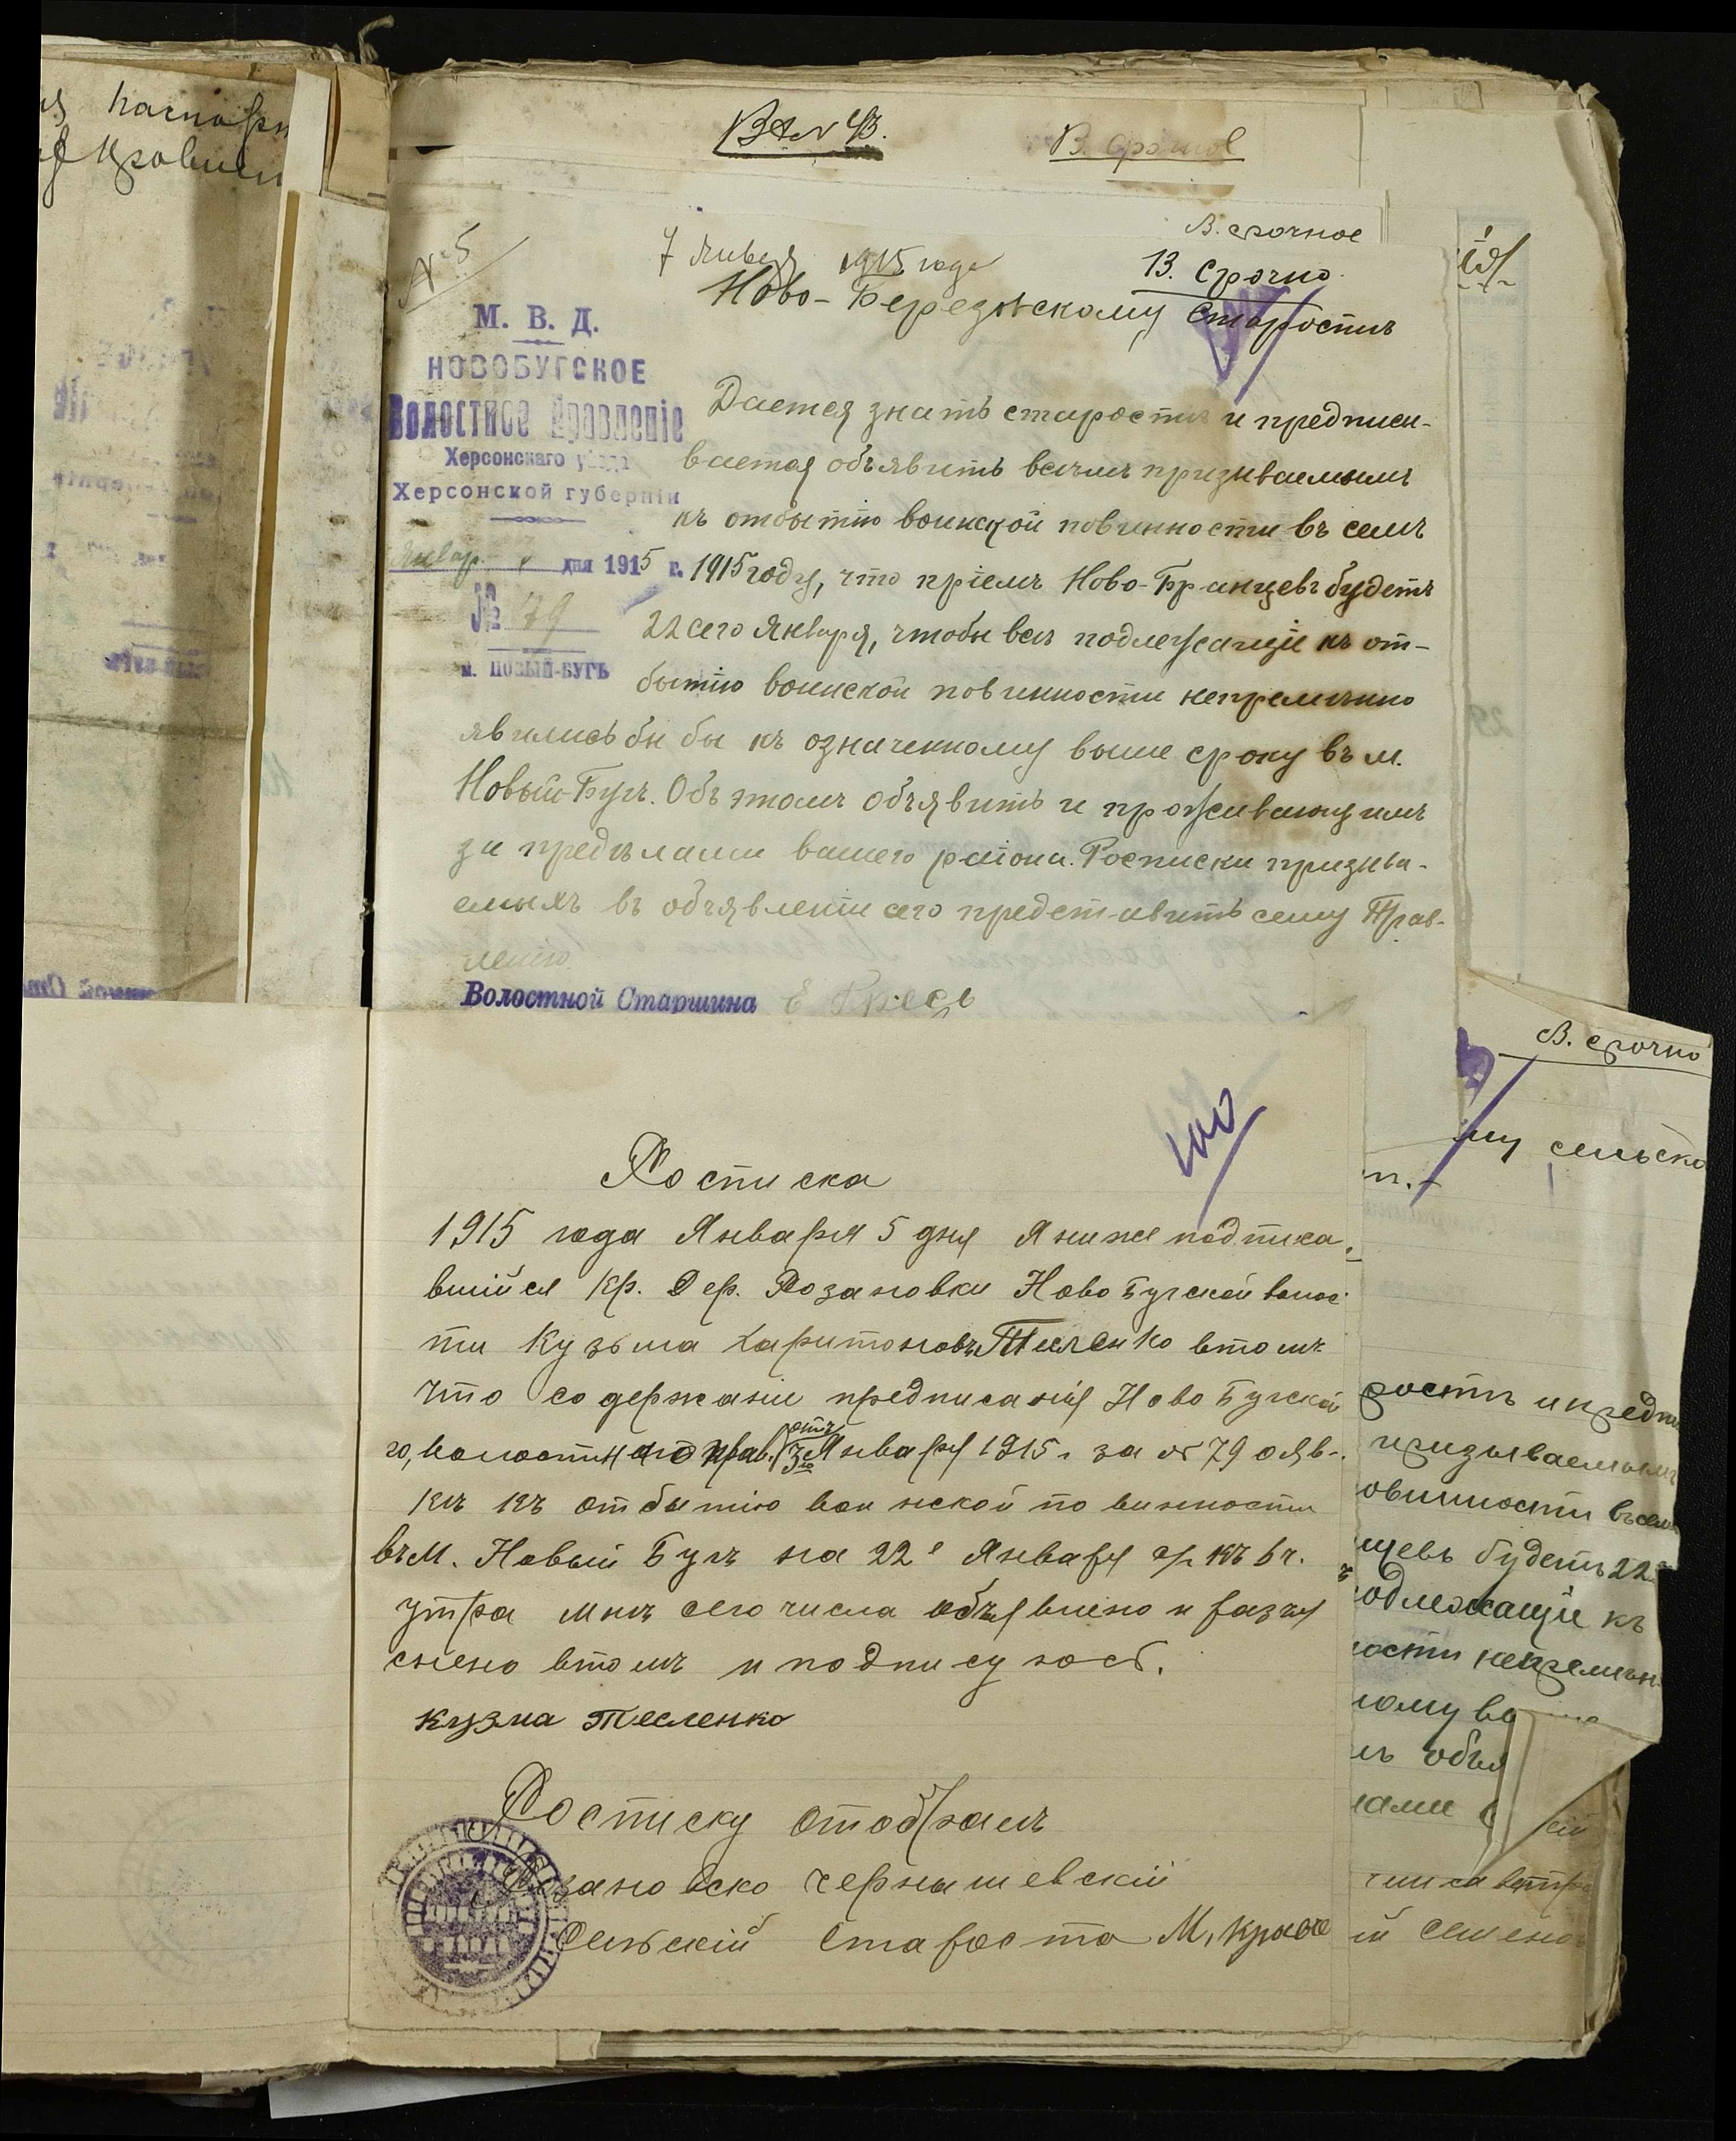 В. срочное
В. срочное
№ 5
7 Января 1915 года
В. Срочно
Ново-Березнѣскому Старостѣ
М. В. Д.
НОВОБУГСКОЕ
Волостное Правленіе
Херсонскаго уѣзда
Херсонской губерніи
Январ дня 1915 г.
№ 79
м. НОВЫЙ-БУГЪ
Дается знать старостѣ и предписы-
вается объявить всѣмъ призываемымъ
къ отбытію воинской повинности въ семъ
1915 году, что пріемъ Ново-Бранцевъ будетъ
22 сего Января, чтобы всѣ подлежащіе къ от-
бытію воинской повинности непремѣнно
явились бы бы къ означенному выше сроку въ м.
Новый-Бугъ. Объ этомъ объявить и проживающимъ
за предѣлами вашего района. Росписки призыва-
емыхъ въ объявленіи сего представить сему Прав-
ленію
Волостной Старшина Е Гресь
100
Росписка
1915 года Января 5 дня Я ниже подписа-
вшійся Кр. Дер. Розановки Ново Бугской волос
ти Кузьма Харитоновъ Тесленко втомъ
что содержаніе предписанія Ново Бугска
го, волостнаго прав. отъ 3го Января 1915 г за № 79 о яв-
кѣ къ отбытію воинской повинности
въ М. Новый Бугъ на 22е Января с/г къ 6 ч.
утра мнѣ сего числа объявлено и разъя
снено втомъ и подписуюсь.
кузма тесленко
Росписку отобралъ
Розановско чернышевскій
Сельскій Староста М. Крав
В. срочно
му сельско
рость и предпи
призываемымъ
овинности въ сем
цевъ будетъ 22
одлежащіе къ
ности непремѣн
ному вы
мъ объя
лами